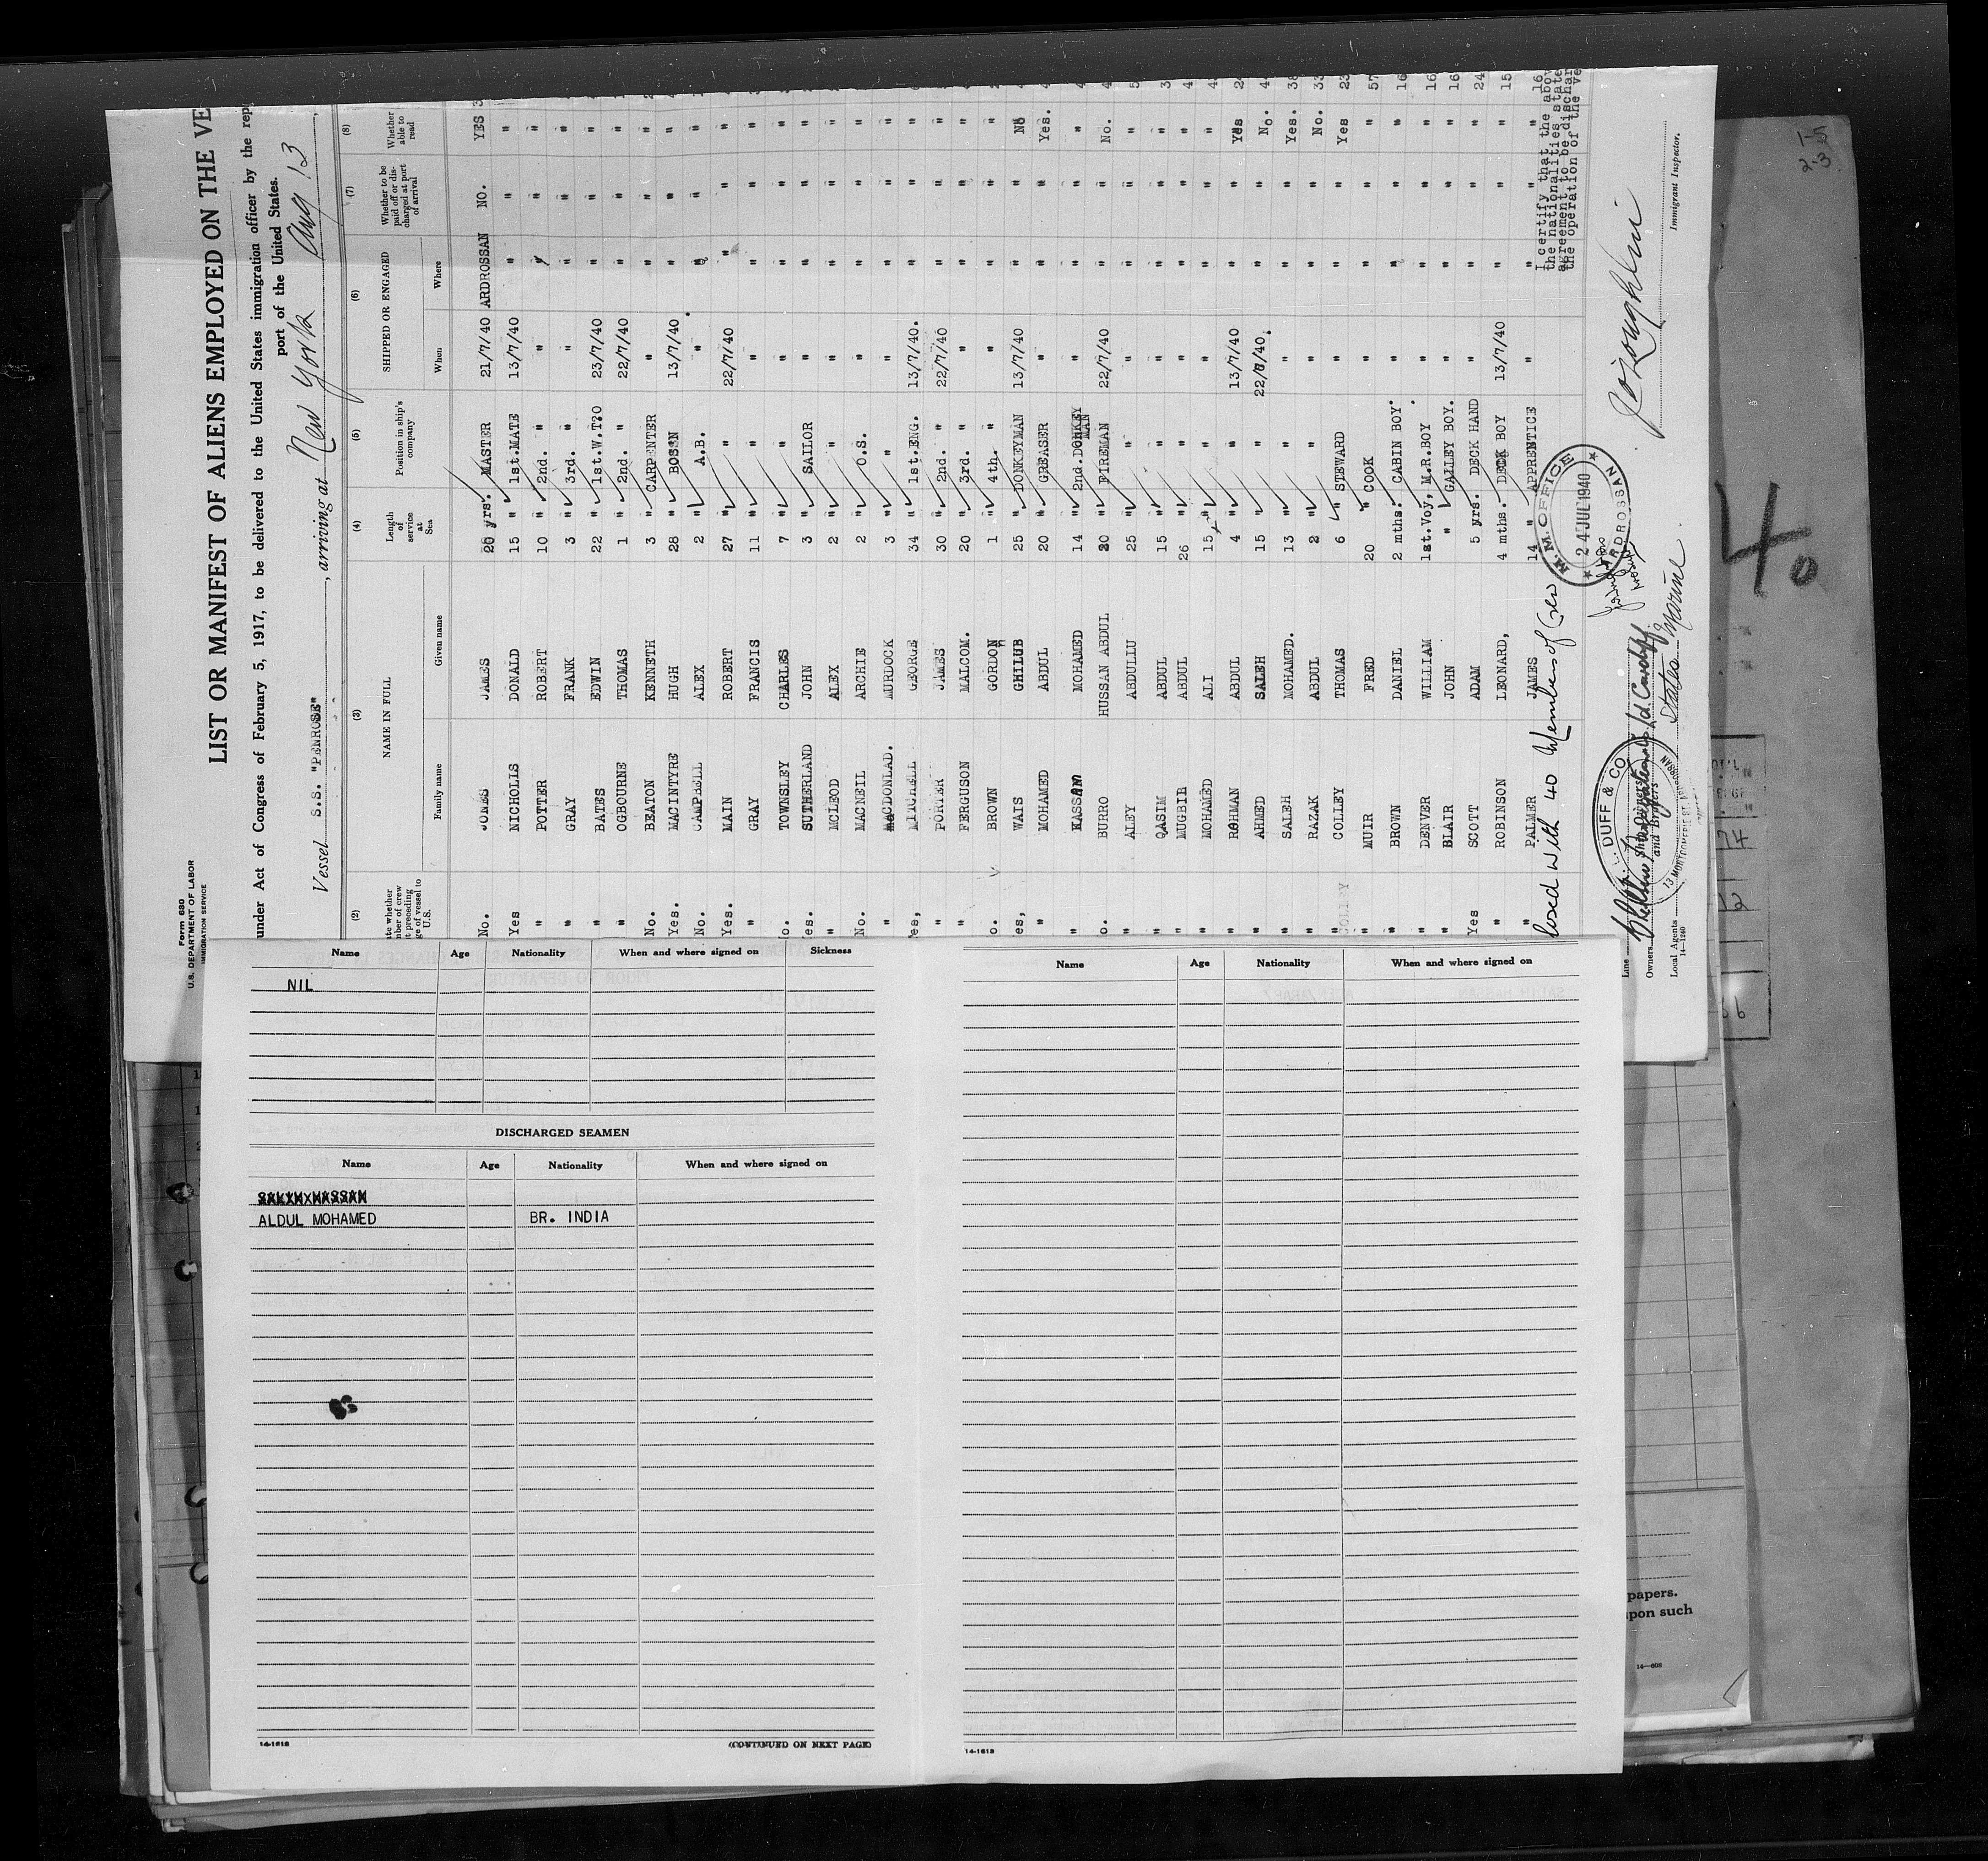 Form 680
U.S. DEPARTMENT OF LABOR
IMMIGRATION SERVICE
LIST OR MANIFEST OF ALIENS EMPLOYED ON THE VE
under Act of Congress of February 5, 1917, to be delivered to the United States immigration officer by the rep
port of the United States.
Vessel S.S. "PENROSE", arriving at New York Aug 13
(2) (3) (4) (5) (6) (7) (8)
NAME IN FULL Length of service at Sea Position in ship's company SHIPPED OR ENGAGED Whether to be paid off or discharged at port of arrival Whether able to read
Family name Given name When Where
No. JONES JAMES 20 yrs. MASTER 21/7/40 ARDROSSAN NO. YES 3
Yes NICHOLIS DONALD 15 " 1st.MATE 13/7/40 " " "
" POTTER ROBERT 10 " 2nd. " " " " "
" GRAY FRANK 3 " 3rd. " " " " "
" BATES EDWIN 22 " 1st.W.T?O 23/7/40 " " "
" OGBOURNE THOMAS 1 " 2nd. " 22/7/40 " " "
No. BEATON KENNETH 3 " CARPENTER " " " "
Yes. MACINTYRE HUGH 28 " BOSSN 13/7/40 " " "
No. CAMPBELL ALEX 2 " A.B. " " " "
Yes. MAIN ROBERT 27 " " 22/7/40 " " "
" GRAY FRANCIS 11 " " " " " "
o. TOWNSLEY CHARLES 7 " " " " " "
es. SUTHERLAND JOHN 3 " SAILOR " " " "
" MCLEOD ALEX 2 " " " " " "
No. MACNEIL ARCHIE 2 " O.S. " " " "
" MACDONLAD. MURDOCK 3 " " " " " "
es, MITCHELL GEORGE 34 " 1st.ENG. 13/7/40. " " "
" PORTER JAMES 30 " 2nd. " 22/7/40 " " "
" FERGUSON MALCOM. 20 " 3rd. " " " " "
o. BROWN GORDON 1 " 4th. " " " " "
es, WAIS GHILUB 25 " DONKEYMAN 13/7/40 " " No
" MOHAMED ABDUL 20 " GREASER " " " Yes.
" KASSAM MOHAMED 14 " 2nd.DONKEY MAN " " " "
o. BURRO HUSSAN ABDUL 20 " FIREMAN 22/7/40 " " No.
" ALEY ABDULLU 25 " " " " " "
" QASIM ABDUL 15 " " " " " "
" MUGBIL ABDUL 26 " " " " " "
" MOHAMED ALI 15 " " " " " "
" ROHMAN ABDUL 4 " " 13/7/40 " " Yes 24
" AHMED SALEH 15 " " 22/7/40. " " No.
" SALEH MOHAMED. 13 " " " " " Yes. 38
" RAZAK ABDUL 2 " " " " " No. 33
" COLLEY THOMAS 6 " STEWARD " " " Yes 23
" MUIR FRED 20 " COOK " " " " 57
" BROWN DANIEL 2 mths. CABIN BOY. " " " " 16
" DENVER WILLIAM 1st.Voy, M.R.BOY " " " " 16
" BLAIR JOHN " GALLEY BOY. " " " " 16
Yes SCOTT ADAM 5 yrs. DECK HAND " " " " 24
" ROBINSON LEONARD, 4 mths. DECK BOY 13/7/40 " " " 15
" PALMER JAMES 14 " APPRENTICE " " " " 16
losed with 40 Members of Crew
I certify that the abov
the nationalities state
agreement to be dischar
the operation of the ve
M.M. OFFICE
24 JUL 1940
ARDROSSAN
DUFF & CO
and Brokers
Line
Owners
Local Agents States Marine
14-1240
Immigrant Inspector.
Name Age Nationality When and where signed on Sickness
NIL
DISCHARGED SEAMEN
Name Age Nationality When and where signed on
ALDUL MOHAMED BR. INDIA
14-1618
(CONTINUED ON NEXT PAGE)
Name Age Nationality When and where signed on
14-1618
1-5
2-3
4
74
12
papers.
upon such
14-608